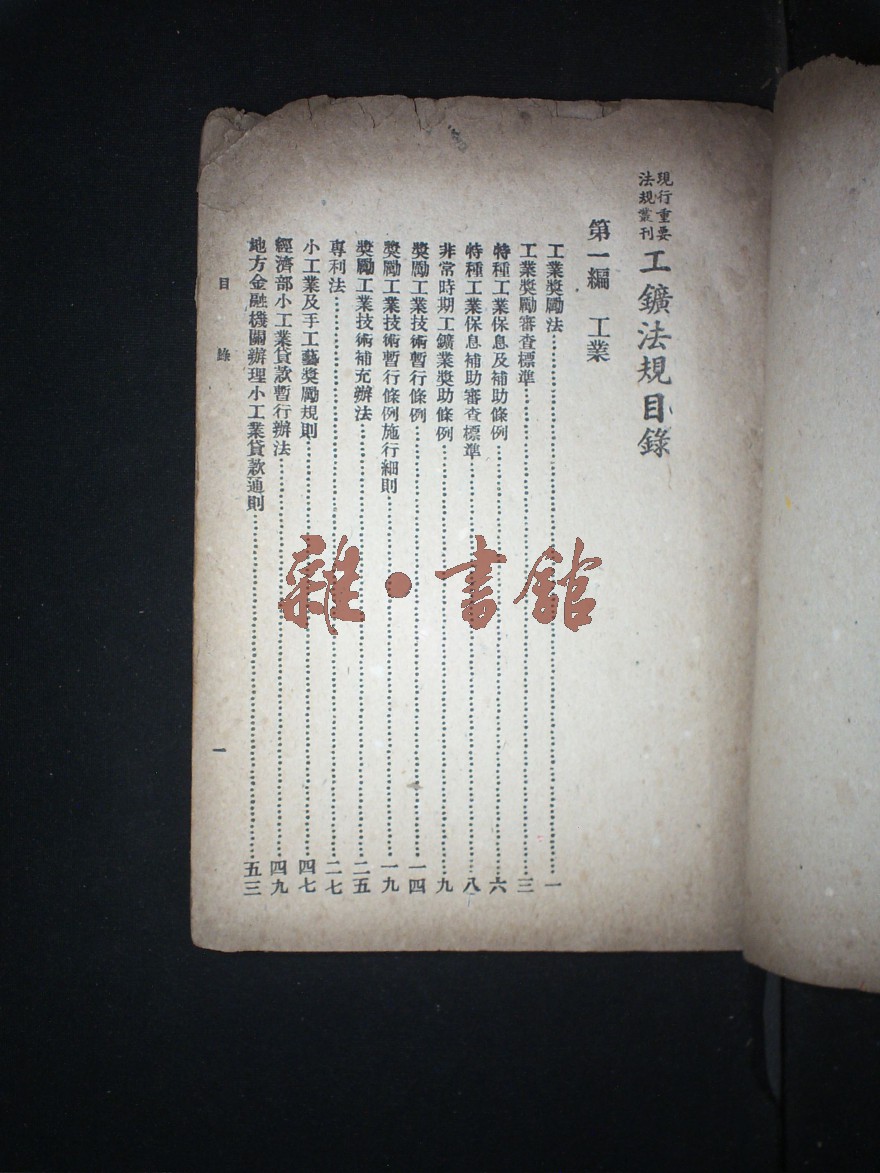 現行重要
法規叢刊
工鑛法規目錄
第一編 工業
工業獎勵法 一
工業獎勵審查標準 三
特種工業保息及補助條例 六
特種工業保息補助審查標準 八
非常時期工鑛業獎助條例 九
獎勵工業技術暫行條例 一四
獎勵工業技術暫行條例施行細則 一九
獎勵工業技術補充辦法 二五
專利法 二七
小工業及手工藝獎勵規則 四七
經濟部小工業貸款暫行辦法 四九
地方金融機關辦理小工業貸款通則 五三
目錄 一
雜·書館